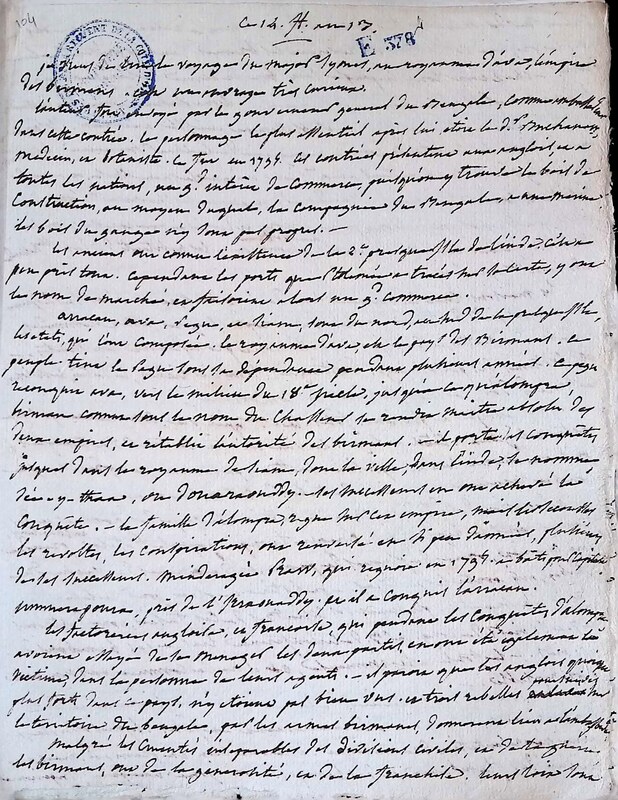 104
ce 14 fl. an 13
E 378
je viens de lire le voyage du major Symes, au royaume d'ava, l'empire
des birmans. c'est un ouvrage très curieux.
l'auteur fut envoyé par le gouverneur general du Bengale, comme
dans cette contrée. le personnage le plus essentiel après lui étoit le dr. Buchanan,
medecin, et botaniste. ce fut en 1795. ces contrées présentent aux anglois et à
toutes les nations, un gd. intérêt de commerce, puisqu'on y trouve le bois de
construction, au moyen duquel, la compagnie du Bengale, a une marine
les bois du gange n'y sont pas propres. —
les anciens ont connu l'existence de la 2e. presqu'isle de l'inde, c'est à
peu près tout. cependant les ports que Ptolémée a tracés sur la carte, y ont
le nom de marché, et faisoient alors un gd. commerce.
arracan, ava, Pegu, et siam, sont du nord, au sud de la presqu'isle,
les etats, qui l'ont composée. le royaume d'ava, est le pays des Birmans. ce
peuple tint le Pegu sous sa dépendance pendant plusieurs années. le pegu
reconquit ava, vers le milieu du 18e. siècle, jusqu'à ce qu'alompra,
birman connu sous le nom de chasseur se rendit maitre absolu des
deux empires, et rétablit l'autorité des birmans. — il porta ses conquêtes
jusques dans le royaume de siam, dont la ville, dans l'inde, se nomme
ou douaraouddy. ses successeurs en ont achevé la
conquête. — la famille d'alompra, règne sur cet empire, mais les secousses
les revoltes, les conspirations, ont renversé en si peu d'années, plusieurs
de ses successeurs. Minderagée Praw, qui regnoit en 1795. a bati pour capitale
ummerapoura, près de l'Irraouaddy. et il a conquis l'arracan.
les factoreries angloises, et francoises, qui pendant les conquêtes d'alompra
avoient essayé de se menager les deux partis, en ont été egalement les
victimes, dans la personne de leurs agents. — il paroit que les anglois quoique
plus forts dans ce pays, n'y étoient pas bien vus. et trois rebelles poursuivis sur
le territoire du bengale, par les armes birmanes, donnerent lieu à l'ambassade
Malgré les cruautés inséparables des divisions civiles, et de la guerre
les birmans, ont de la generosité, et de la franchise. leurs loix sont